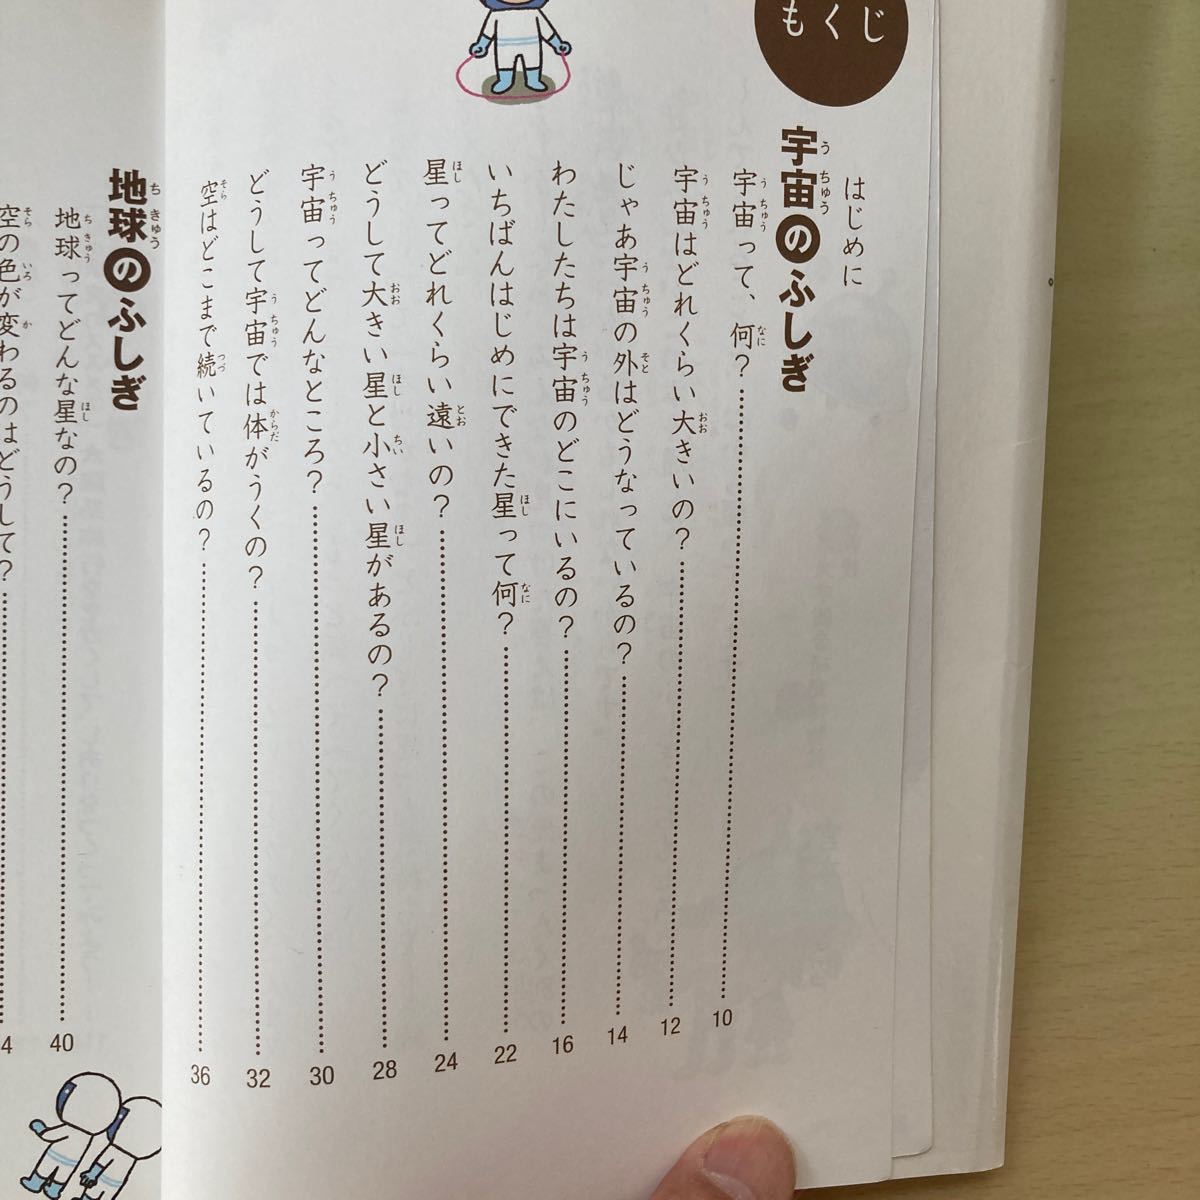 もくじ
はじめに
宇宙のふしぎ
宇宙って、何? 10
宇宙はどれくらい大きいの? 12
じゃあ宇宙の外はどうなっているの? 14
わたしたちは宇宙のどこにいるの? 16
いちばんはじめにできた星って何? 22
星ってどれくらい遠いの? 24
どうして大きい星と小さい星があるの? 28
宇宙ってどんなところ? 30
どうして宇宙では体がうくの? 32
空はどこまで続いているの? 36
地球のふしぎ
地球ってどんな星なの? 40
空の色が変わるのはどうして?